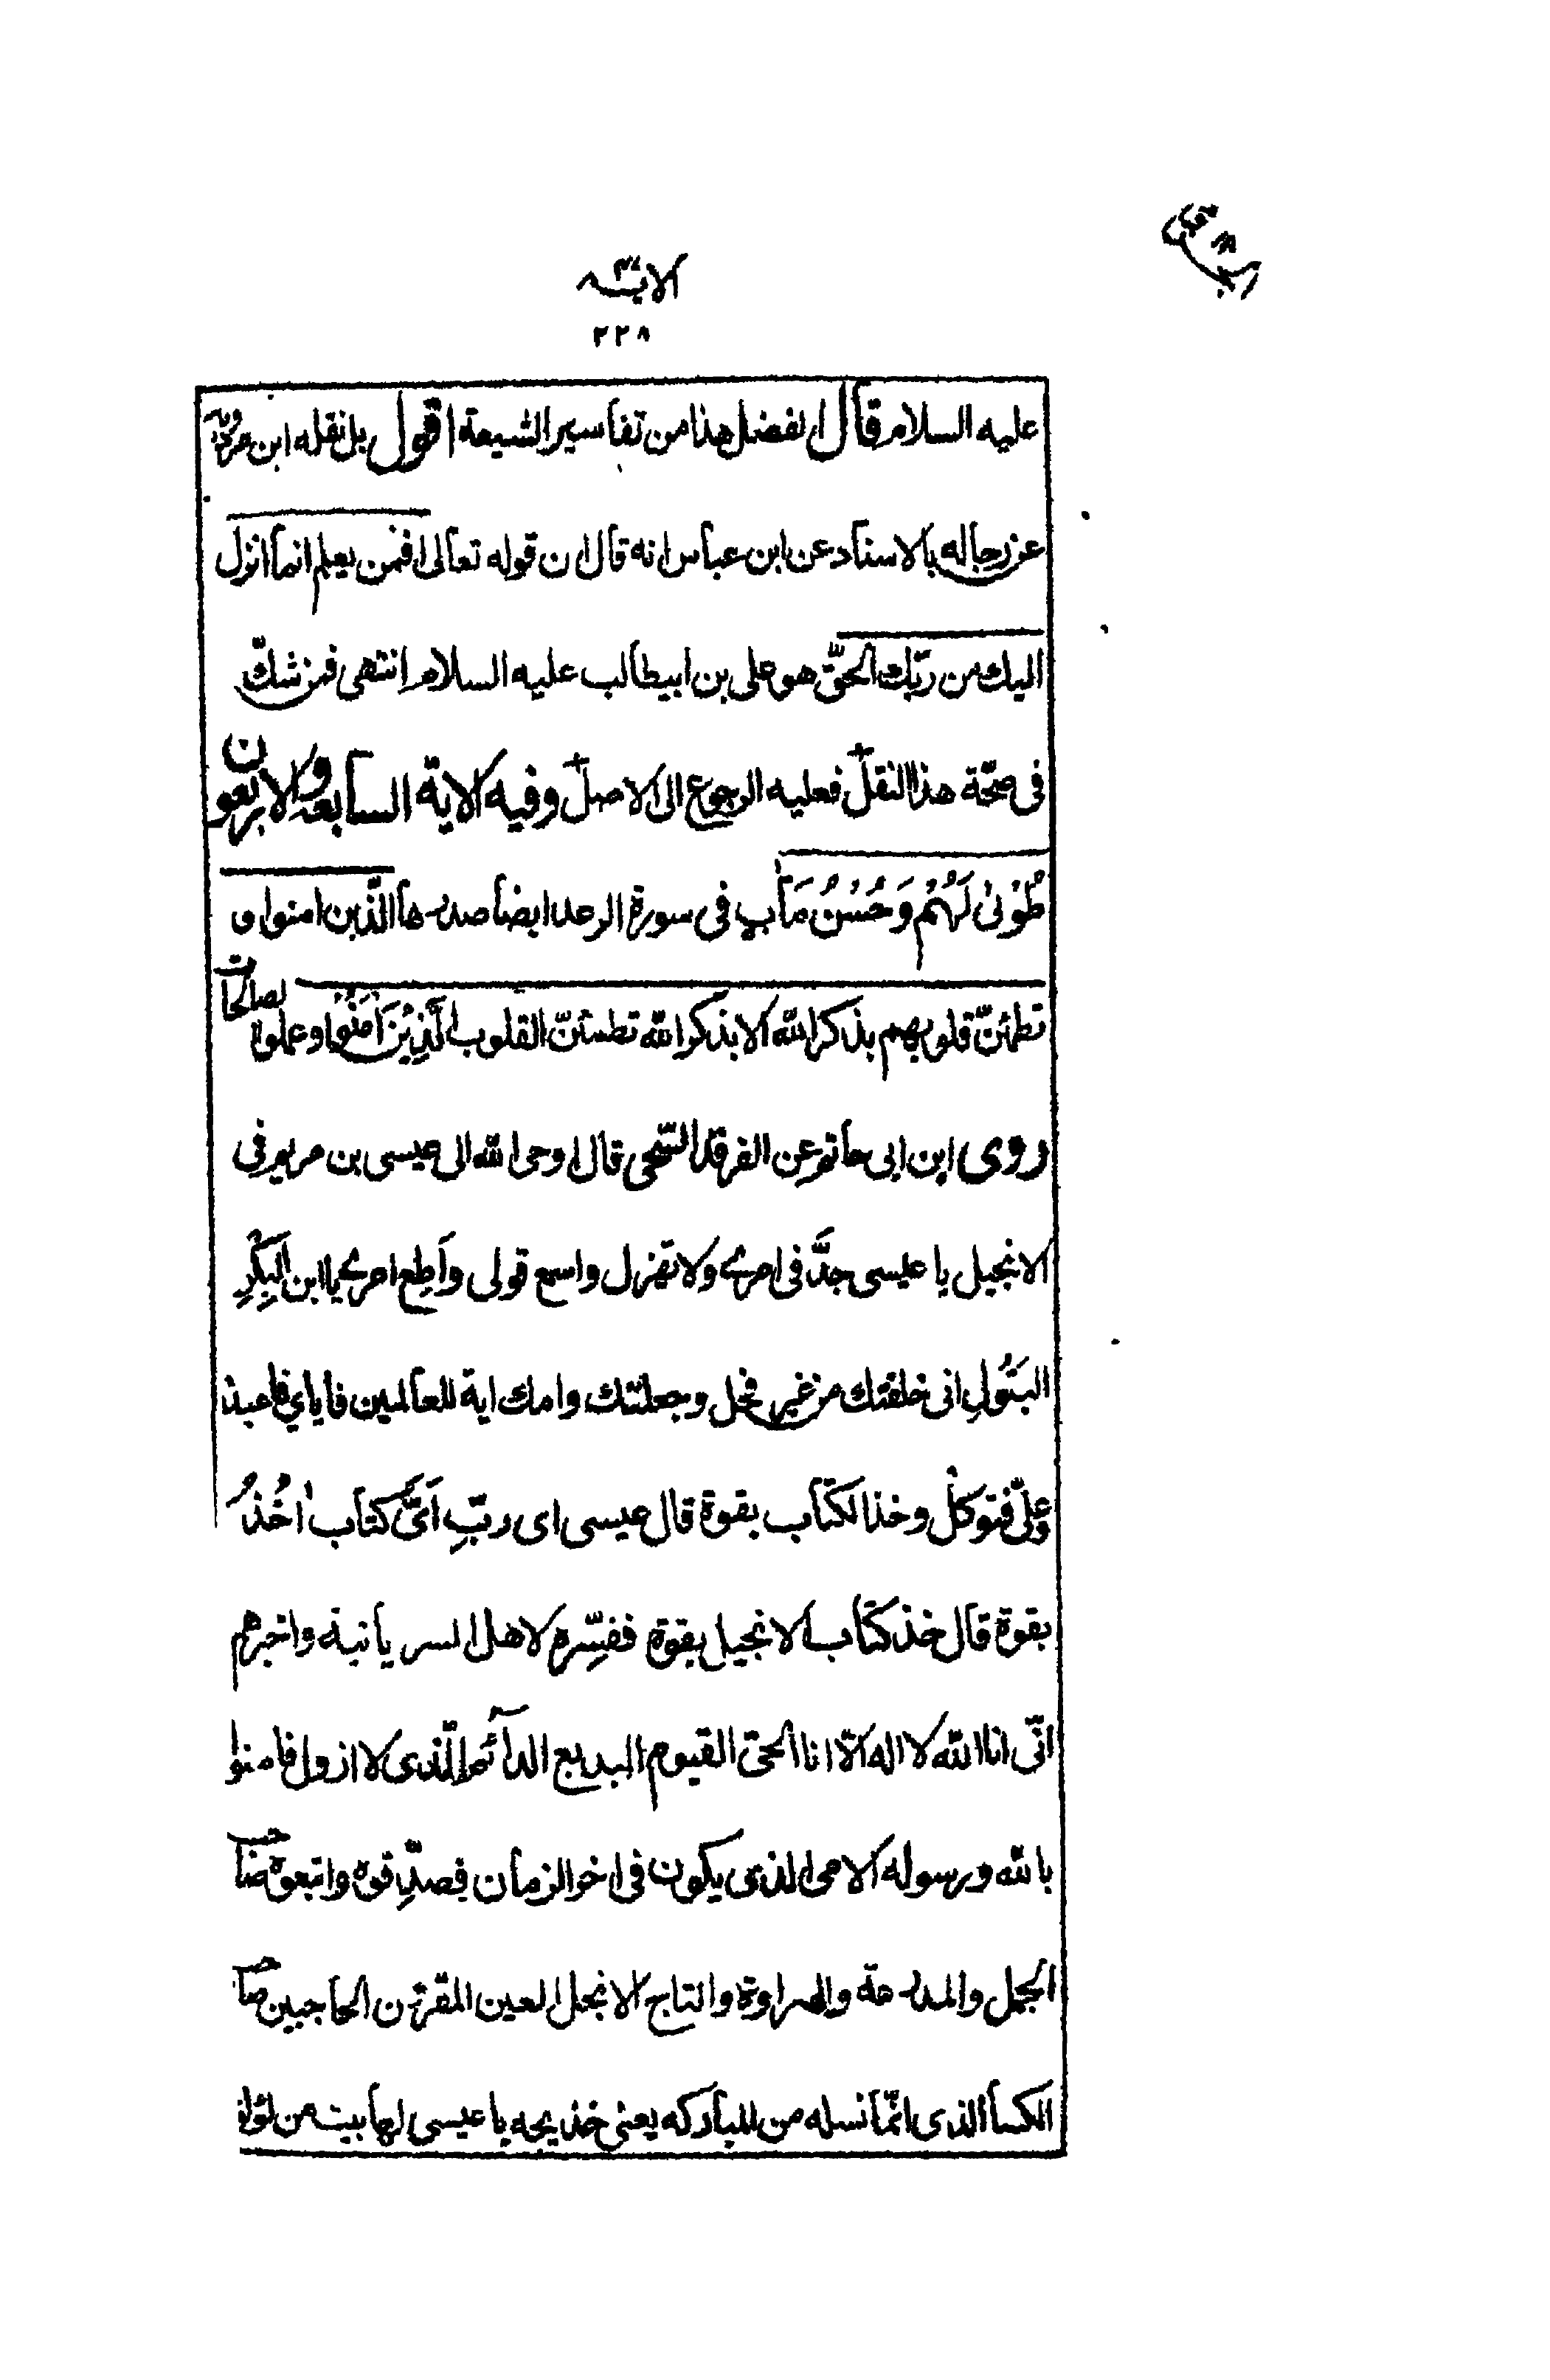 الآية ٤٧
٢٢٨
عليه السلام قال الفضل هذا من تفاسير الشيعة اقول بل نقله ابن مردويه
عن رجاله بالاسناد عن ابن عباس انه قال ان قوله تعالى افمن يعلم انما انزل
اليك من ربّك الحقّ هو على بن ابيطالب عليه السلام انتهى فمن شكّ
فى صحّة هذا النقل فعليه الرجوع الى الاصل وفيه الاية السابعة والاربعون
طُوْبىٰ لَهُمْ وَحُسْنُ مَآبٍ فى سورة الرعد ايضا صدرها الّذين امنوا و
تطمئنّ قلوبهم بذكر الله الا بذكر الله تطمئنّ القلوب الَّذِيْنَ اٰمَنُوا وعملوا الصالحات
روى ابن ابى حاتم عن الفرقد السّبخى قال اوحى الله الى عيسى بن مريم فى
الانجيل يا عيسى جدَّ فى امرى ولا تهزل واسمع قولى واَطِع امرى يا ابن البِكْرِ
البَتُولِ انى خلقتك من غير فحل وجعلتك وامك اية للعالمين فاياي فاعبد
وعلىّ فتوكل وخذ الكتاب بقوة قال عيسى اى ربِّ اَىَّ كتاب اٰخُذُ
بقوة قال خذ كتاب الانجيل بقوة ففسِّره لاهل السريانية واخبرهم
انّى انا الله لا اله الّا انا الحىّ القيوم البديع الدآئم الّذى لا ازول فامنوا
بالله ورسوله الامى الذى يكون فى اخر الزمان فصدِّقوه واتبعوه صاحب
الجمل والمدرعة والهراوة والتاج الانجل العين المقرن الحاجبين صاحب
الكسا الذى انّما نسله من المباركه يعنى خديجه يا عيسى لها بيت من لؤلؤ